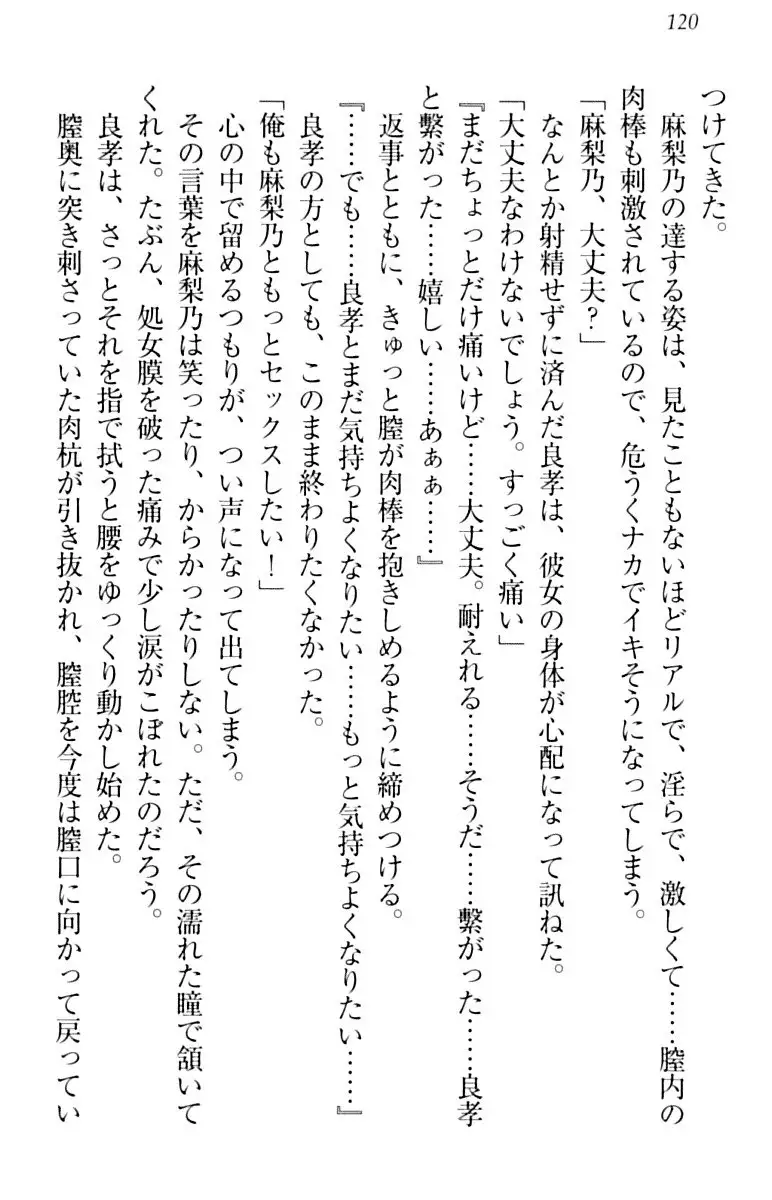 120
つけてきた。
　麻梨乃の達する姿は、見たこともないほどリアルで、淫らで、激しくて……膣内の
肉棒も刺激されているので、危うくナカでイキそうになってしまう。
「麻梨乃、大丈夫？」
　なんとか射精せずに済んだ良孝は、彼女の身体が心配になって訊ねた。
「大丈夫なわけないでしょう。すっごく痛い」
『まだちょっとだけ痛いけど……大丈夫。耐えれる……そうだ……繋がった……良孝
と繋がった……嬉しい……あぁぁ……』
　返事とともに、きゅっと膣が肉棒を抱きしめるように締めつける。
『……でも……良孝とまだ気持ちよくなりたい……もっと気持ちよくなりたい……』
　良孝の方としても、このまま終わりたくなかった。
「俺も麻梨乃ともっとセックスしたい！」
　心の中で留めるつもりが、つい声になって出てしまう。
　その言葉を麻梨乃は笑ったり、からかったりしない。ただ、その濡れた瞳で頷いて
くれた。たぶん、処女膜を破った痛みで少し涙がこぼれたのだろう。
　良孝は、さっとそれを指で拭うと腰をゆっくり動かし始めた。
　膣奥に突き刺さっていた肉杭が引き抜かれ、膣腔を今度は膣口に向かって戻ってい